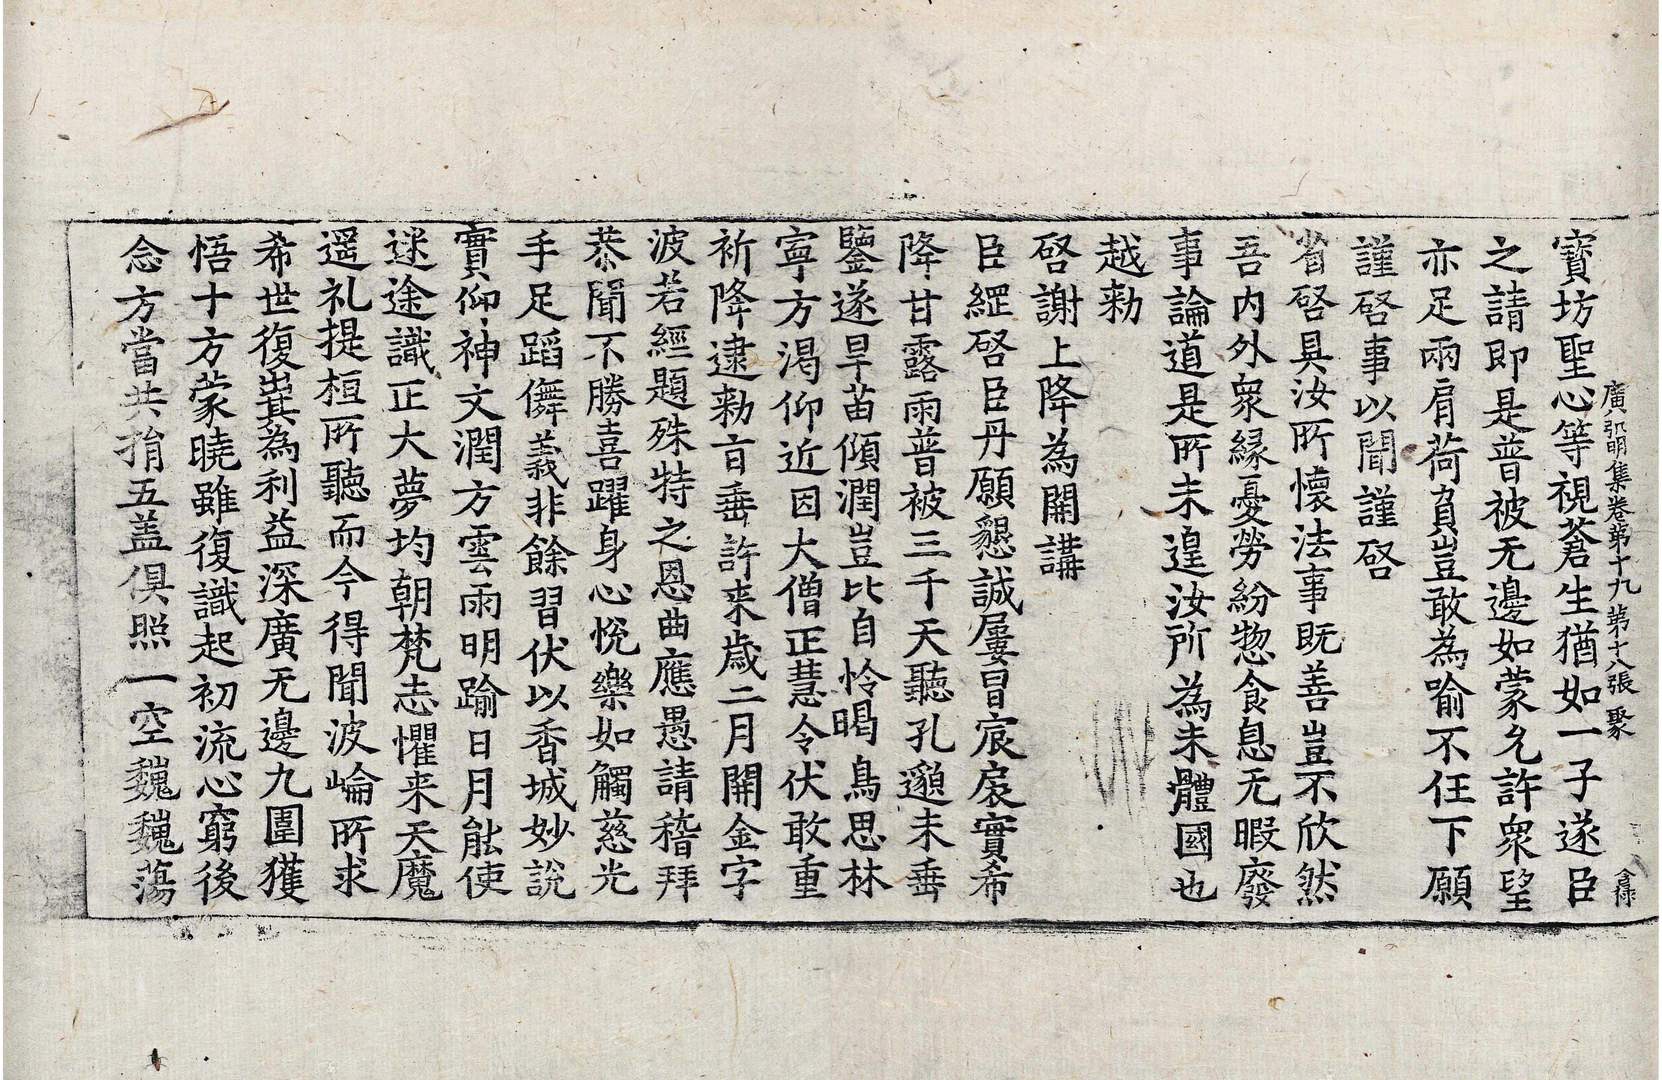 廣弘明集卷第十九 第十八張 聚
寶坊聖心等視蒼生猶如一子遂臣
之請即是普被无邊如蒙允許衆望
亦足兩肩荷負豈敢為喻不任下願
謹啓事以聞謹啓
省啓具汝所懷法事既善豈不欣然
吾內外衆緣憂勞紛惣食息无暇廢
事論道是所未遑汝所為未體國也
越勑
啓謝上降為開講
臣綱啓臣丹願懇誠屢冒宸扆實希
降甘露雨普被三千天聽孔邈未垂
鑒遂旱苗傾潤豈比自怜暍鳥思林
寧方渴仰近因大僧正慧令伏敢重
祈降逮勑旨垂許来歲二月開金字
波若經題殊特之恩曲應愚請稽拜
恭聞不勝喜躍身心悅樂如觸慈光
手足蹈儛義非餘習伏以香城妙說
實仰神文潤方雲雨明踰日月能使
迷途識正大夢均朝梵志懼来天魔
遥礼提桓所聽而今得聞波崘所求
希世復兾為利益深廣无邊九圍獲
悟十方蒙曉雖復識起初流心窮後
念方當共捐五盖俱照一空巍巍蕩